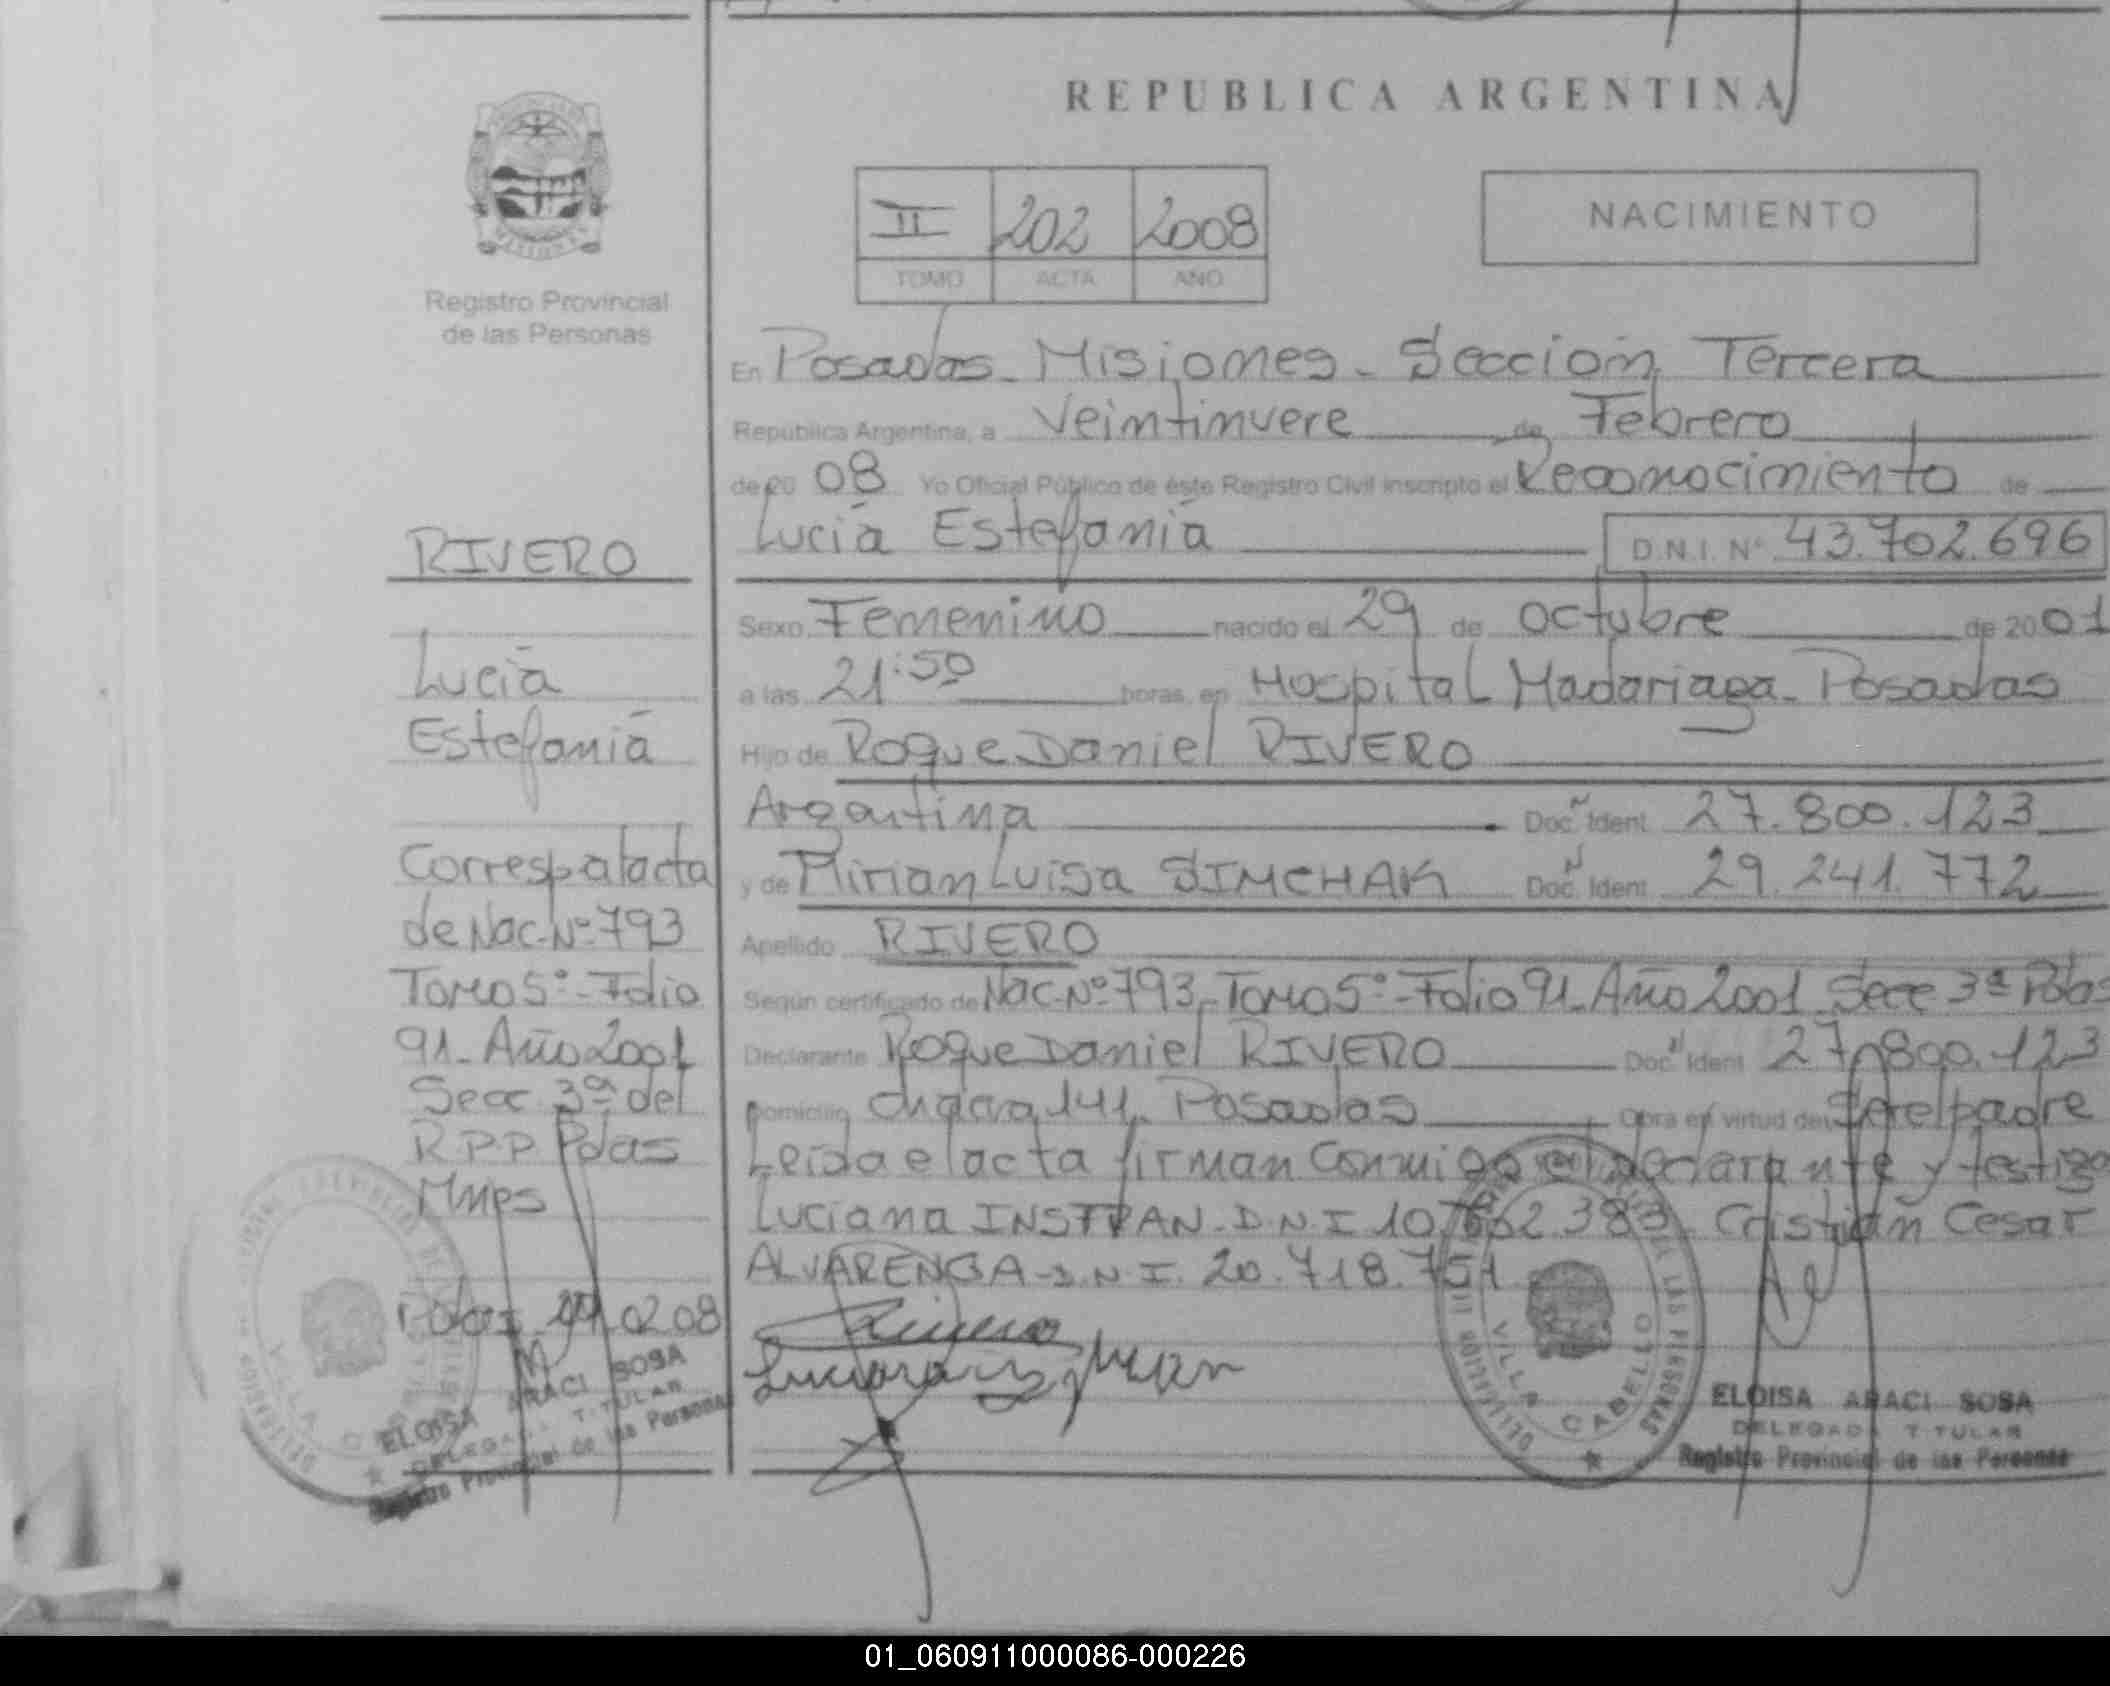 REPUBLICA ARGENTINA
II 202 2008
TOMO ACTA AÑO
NACIMIENTO
Registro Provincial
de las Personas
En Posadas - Misiones - Sección Tercera
República Argentina, a Veintinueve de Febrero
de 20 08 Yo Oficial Público de éste Registro Civil inscripto el Reconocimiento de
Lucía Estefanía D.N.I. Nº 43.702.696
Sexo Femenino nacido el 29 de octubre de 20 01
a las 21:50 horas, en Hospital Madariaga - Posadas
Hijo de Roque Daniel RIVERO
Argentina Doc. Ident 27.800.123
y de Mirian Luisa SIMCHAK Doc. Ident 29.241.772
Apellido RIVERO
Según certificado de Nac-Nº 793 - Tomo 5º - Folio 91 - Año 2001 Secc 3ª Pdas
Declarante Roque Daniel RIVERO Doc. Ident 27.800.123
Domicilio chacra 141 - Posadas Obra en virtud de Ser el padre
Leída el acta firman Conmigo el declarante y testigo
Luciana INSFRAN - D.N.I 10.662.383 Cristian Cesar
ALVARENGA - D.N.I. 20.718.751
RIVERO
Lucía
Estefanía
Corresp al acta
de Nac-Nº 793
Tomo 5º - Folio
91 - Año 2001
Secc 3ª del
R.P.P Pdas
Mnes
Pdas 29 02 08
ELOISA ARACI SOSA
DELEGADA TITULAR
Registro Provincial de las Personas
VILLA CABELLO
ELOISA ARACI SOSA
DELEGADA TITULAR
Registro Provincial de las Personas
01_060911000086-000226